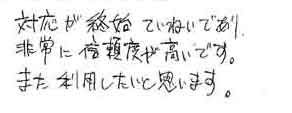 対応が終始ていねいであり、
非常に信頼度が高いです。
また利用したいと思います。